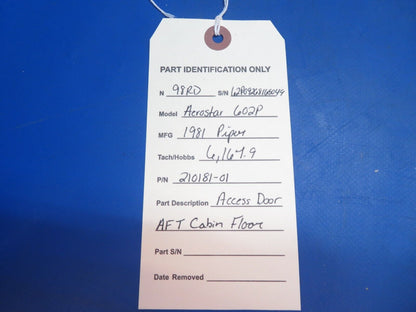 PART IDENTIFICATION ONLY
N 98RD S/N 62P08268165049
Model Aerostar 602P
MFG 1981 Piper
Tach/Hobbs 6,167.9
P/N 210181-01
Part Description Access Door
AFT Cabin Floor
Part S/N
Date Removed